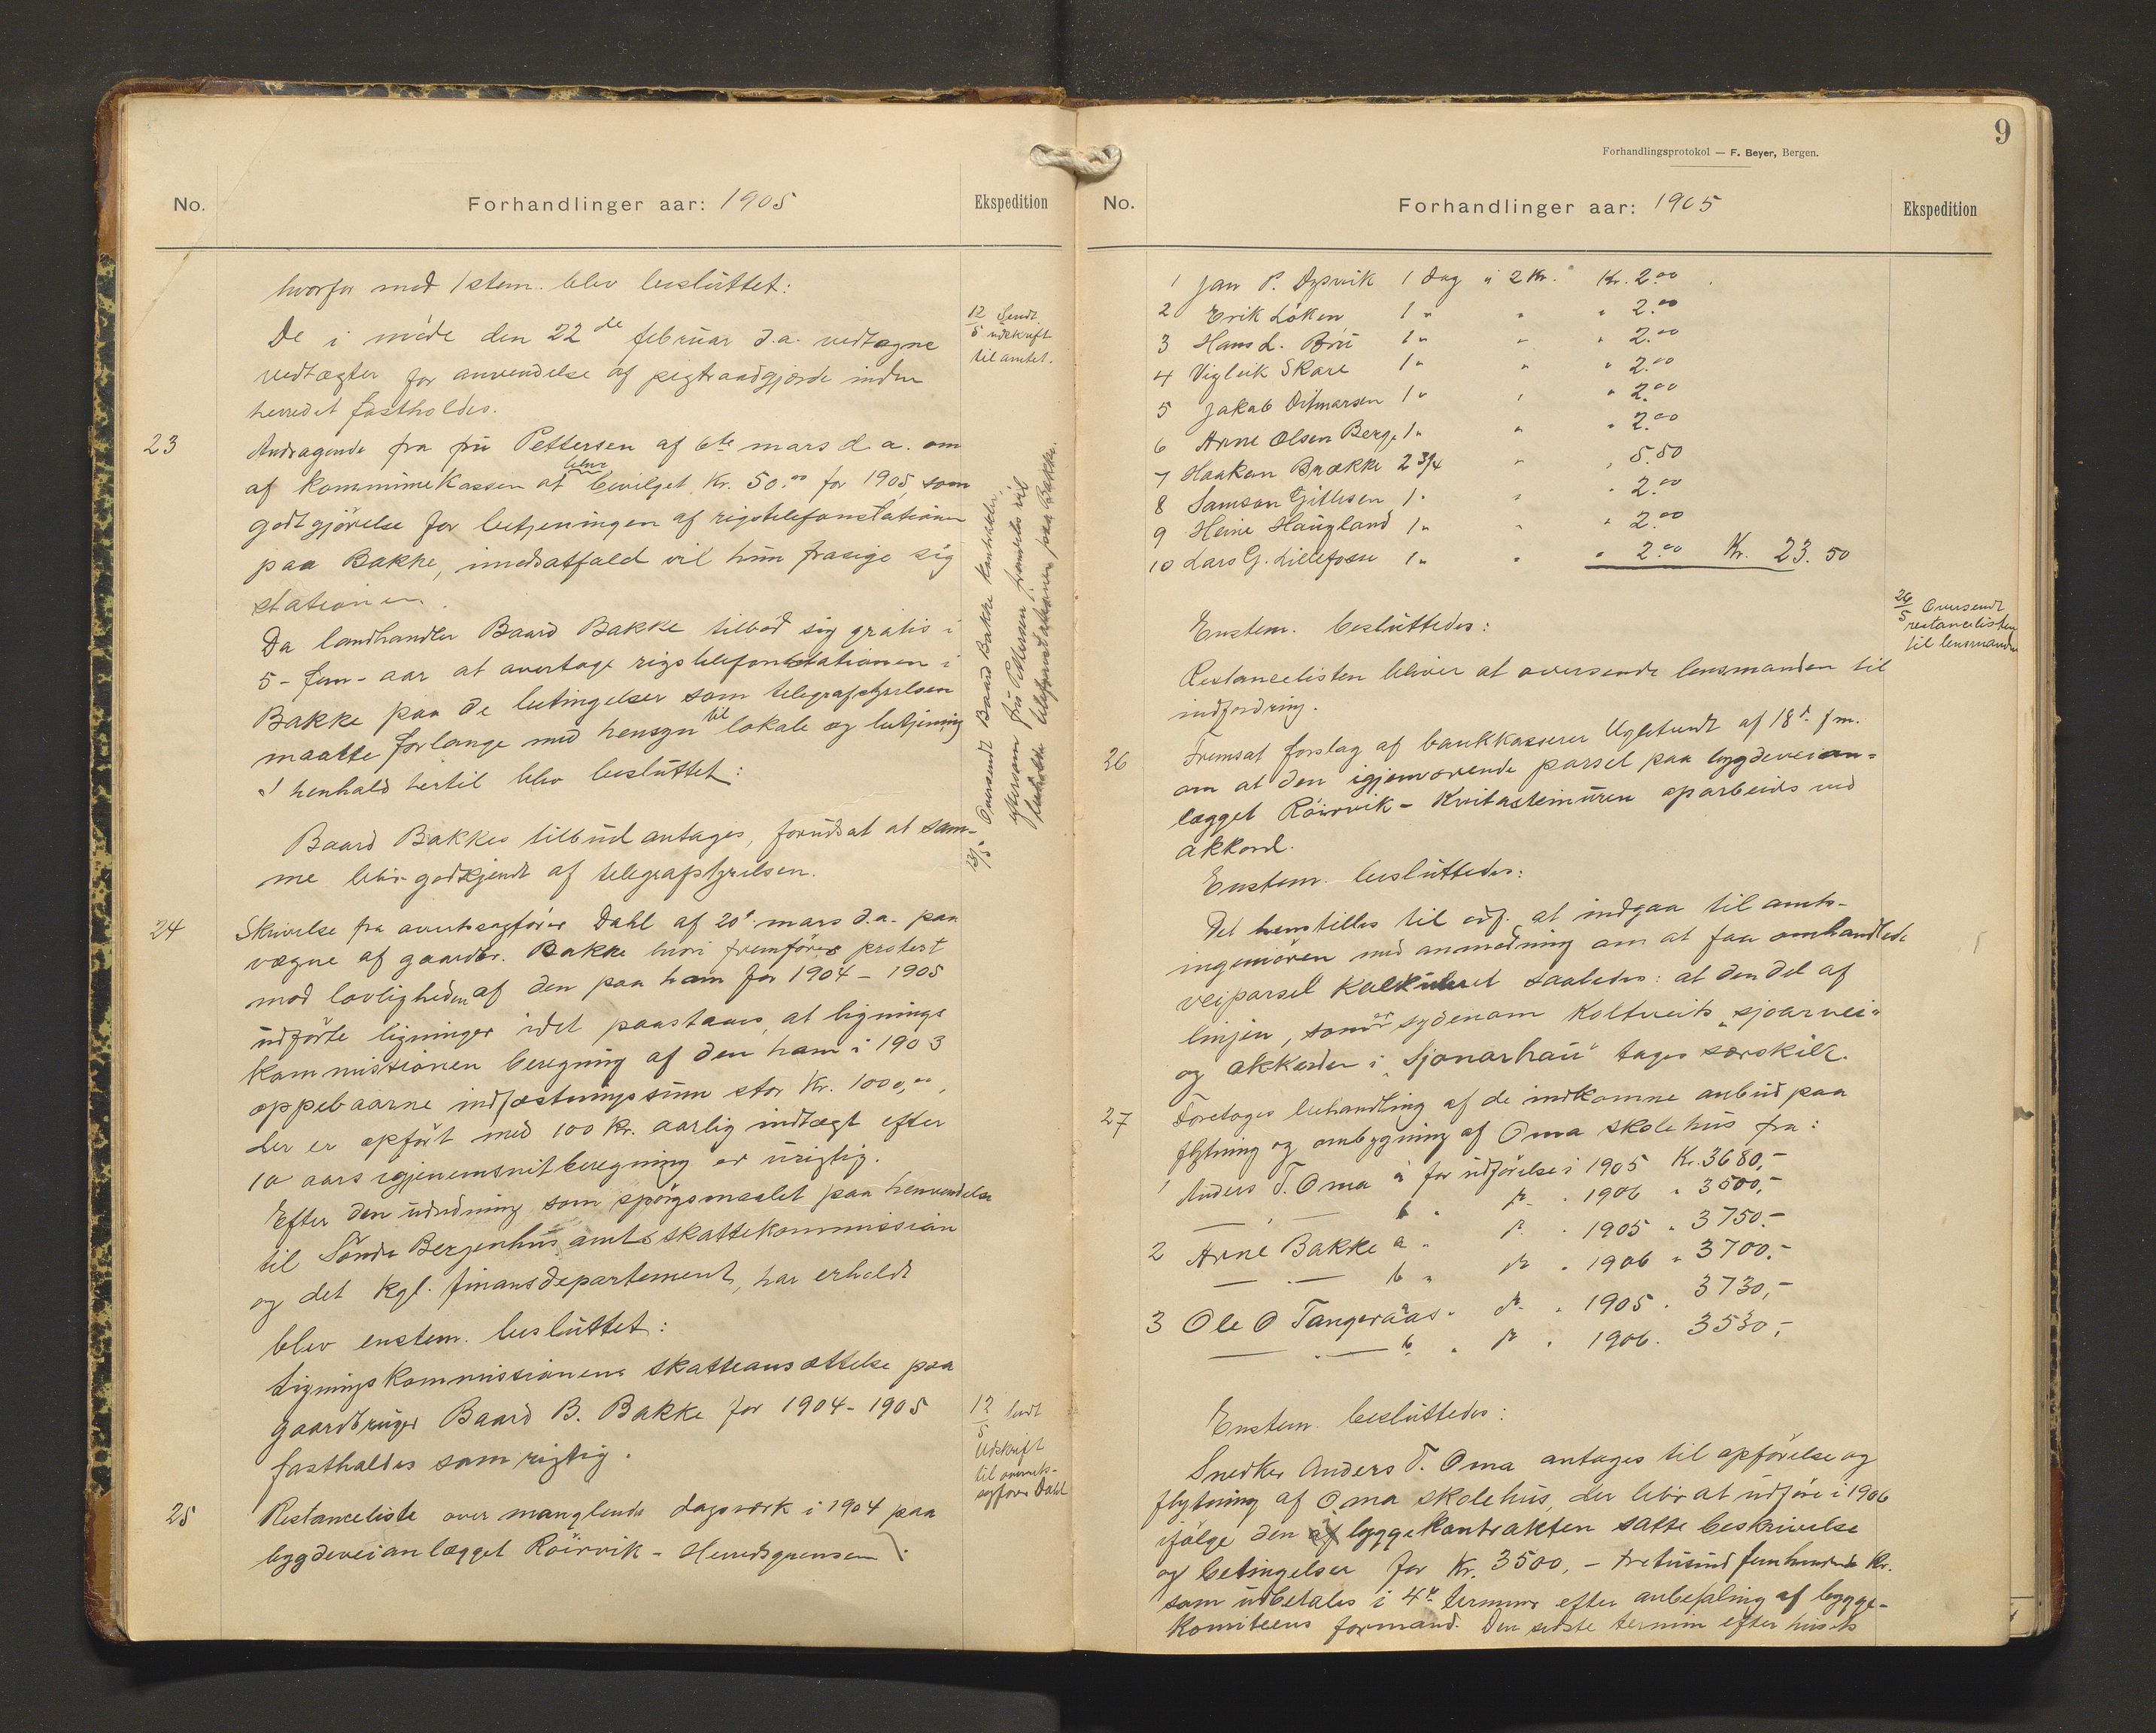 No.
Forhandlinger aar: 1905
Ekspedition
hvorfor med 1 stem. blev besluttet:
De i möde den 22de februar d.a. vedtagne
vedtægter for anvendelse af pigtraadgjærde inden
herredet fastholdes.
12/5 Sendt
udskrift
til amtet.
23
Andragende fra fru Pettersen af 6te mars d.a. om
af kommunekassen at blive bevilget Kr. 50.00 for 1905, som
godtgjörelse for betjeningen af rigstelefonstationen
paa Bakke, imodsatfald vil hun frasige sig
stationen.
Da landhandler Baard Bakke tilböd sig gratis i
5 - fem - aar at overtage rigstelefonstationen i
Bakke paa de betingelser som telegrafstyrelsen
maatte forlange med hensyn til lokale og betjening
I henhold hertil blev besluttet:
Baard Bakkes tilbud antages, forudsat at sam-
me blir godkjendt af telegrafstyrelsen.
13/5 Oversendt Baard Bakke kontrakten,
eftersom fru Pettersen fremdeles vil
beholde telefonstationen paa Bakke.
24
Skrivelse fra overretssagförer Dahl af 20de mars d.a. paa
vegne af gaardbr. Bakke hvori fremföres protest
mod lovligheden af den paa ham for 1904 - 1905
udförte ligninger idet paastaaes, at lignings
kommissionen beregning af den ham i 1903
oppebaarne indfæstningssum stor Kr. 1000,00,
der er opfört med 100 Kr. aarlig indtægt efter
10 aars igjenemsnitberegning er urigtig.
Efter den udredning som spörgsmaalet paa henvendelse
til Söndre Bergenhus amts skattekommission
og det kgl. finansdepartement, har erholdt
blev enstem. besluttet:
Ligningskommissionens skatteansættelse paa
gaardbruger Baard B. Bakke for 1904 - 1905
fastholdes som rigtig.
12/5 Sendt
Udskrift
til overrets-
sagförer Dahl
25
Restanceliste over manglende dagsværk i 1904 paa
bygdeveianlægget Röirvik - Herredsgrensen:
9
Forhandlingsprotokol — F. Beyer, Bergen.
No.
Forhandlinger aar: 1905
Ekspedition
1 Jan P. Dysvik 1 Dag á 2 Kr. Kr. 2.00
2 Erik Löken 1 " " " 2.00
3 Hans L. Bru 1 " " " 2.00
4 Vigleik Skare 1 " " " 2.00
5 Jakob Ditmarsen 1 " " " 2.00
6 Arne Olsen Berge 1 " " " 2.00
7 Haakon Brække 2 3/4 " " 5.50
8 Samson Gitlesen 1 " " " 2.00
9 Heine Haugland 1 " " " 2.00
10 Lars G. Lillefosse 1 " " " 2.00 Kr. 23.50
Enstem. besluttedes:
Restancelisten bliver at oversende lensmanden til
indfordring.
26/5 Oversendt
restancelisten
til lensmanden
26
Fremsat forslag af bankkasserer Uglutundt af 18de f.m.
om at den igjenværende parsel paa bygdeveian-
lægget Röirvik - Kvitasteinuren oparbeides ved
akkord.
Enstem. besluttedes:
Det henstilles til ordf. at indgaa til amts-
ingeniören med anmodning om at faa omhandlede
veiparsel kalkuleret saaledes: at den del af
linjen, som er sydenom Koltveits "sjoarvei"
og akkorden i "Sjonarhau" tages særskilt.
27
Foretoges behandling af de indkomne anbud paa
flytning og ombygning af Oma skolehus fra:
1 Anders T. Oma a for udförelse i 1905 Kr. 3680,-
— " — b " " 1906 " 3500,-
2 Arne Bakke a " " 1905 " 3750.-
— " — b " " 1906 " 3700.-
3 Ole O Tangeraas a " " 1905 " 3730,-
— " — b " " 1906 " 3530,-
Enstem. besluttedes:
Snedker Anders T. Oma antages til opförelse og
flytning af Oma skolehus, der blir at udföre i 1906
ifölge den i byggekontrakten satte beskrivelse
og betingelser for Kr. 3500,- tretusind femhundrede Kr.
som udbetales i 4de terminer efter anbefaling af bygge-
komiteens formand. Den sidste termin efter husets